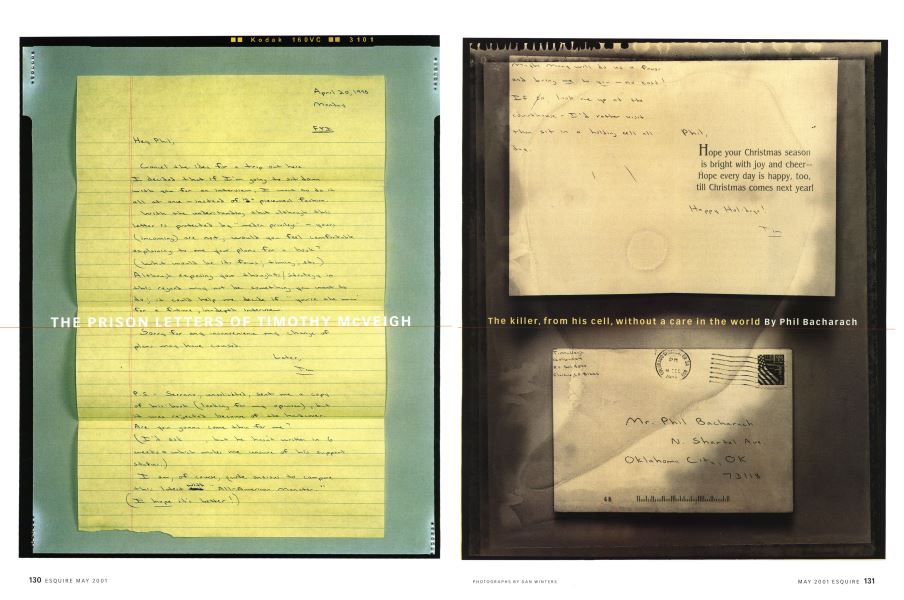 Kodak 160VC 3101
April 20, 1998
Monday
FYI
Hey Phil,
Cancel the idea for a trip out here.
I decided that if I'm going to sit down
with you for an interview, I want to do it
all at once - instead of
With the understanding that although this
letter is protected by "media privilege" - yours
(incoming) are not, would you feel comfortable
explaining to me your plans for a book?
(What would be its focus, timing, etc.)
Although exposing your thoughts/strategy in
this regard may not be something you want to
do, it could help me decide if "you're the man"
for a future, in-depth interview.
THE PRISON LETTERS OF TIMOTHY McVEIGH
Sorry for any inconvenience my change of
plans may have caused.
Later,
Tim
P.S. - Serrano, unsolicited, sent me a copy
of his book (looking for my opinion), but
it was rejected because of the hardcover.
Are you gonna save this for me?
(I'd ask , but he hasn't written in 6
weeks - which makes me unsure of his support
status.)
I am, of course, quite anxious to compare
this latest with "All-American Monster."
(I hope it's better!)
130 ESQUIRE MAY 2001
Maybe Nancy will do us a favor
and bring me to you - no cost!
If so, look me up at the
courthouse - I'd rather visit
than sit in a holding cell all
day.
Phil,
Hope your Christmas season
is bright with joy and cheer—
Hope every day is happy, too,
till Christmas comes next year!
Happy Holidays!
Tim
The killer, from his cell, without a care in the world By Phil Bacharach
Mr. Phil Bacharach
N. Shartel Ave.
Oklahoma City, OK
73118
48
PHOTOGRAPHS BY DAN WINTERS
MAY 2001 ESQUIRE 131